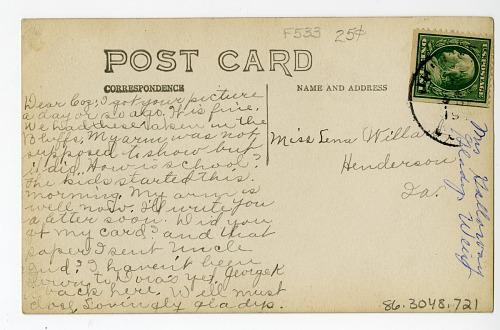 F533 25¢
POST CARD
CORRESPONDENCE
NAME AND ADDRESS
Dear Coz; I got your picture
a day or so ago. It is fine.
We had these taken in the
Bluffs. My arm was not
supposed to show but
it did. How is school?
The kids started this
morning. My arm is
well now. I'll write you
a letter soon. Did you
get my card? and that
paper I sent Uncle
? I haven't been
down to Dora's yet. George K
is back here. Well must
close, Lovingly Gladys.
Miss Lena Willa
Henderson
Ia.
U.S. POSTAGE
Mrs Galloway
Gladys Weist
86.3048.721